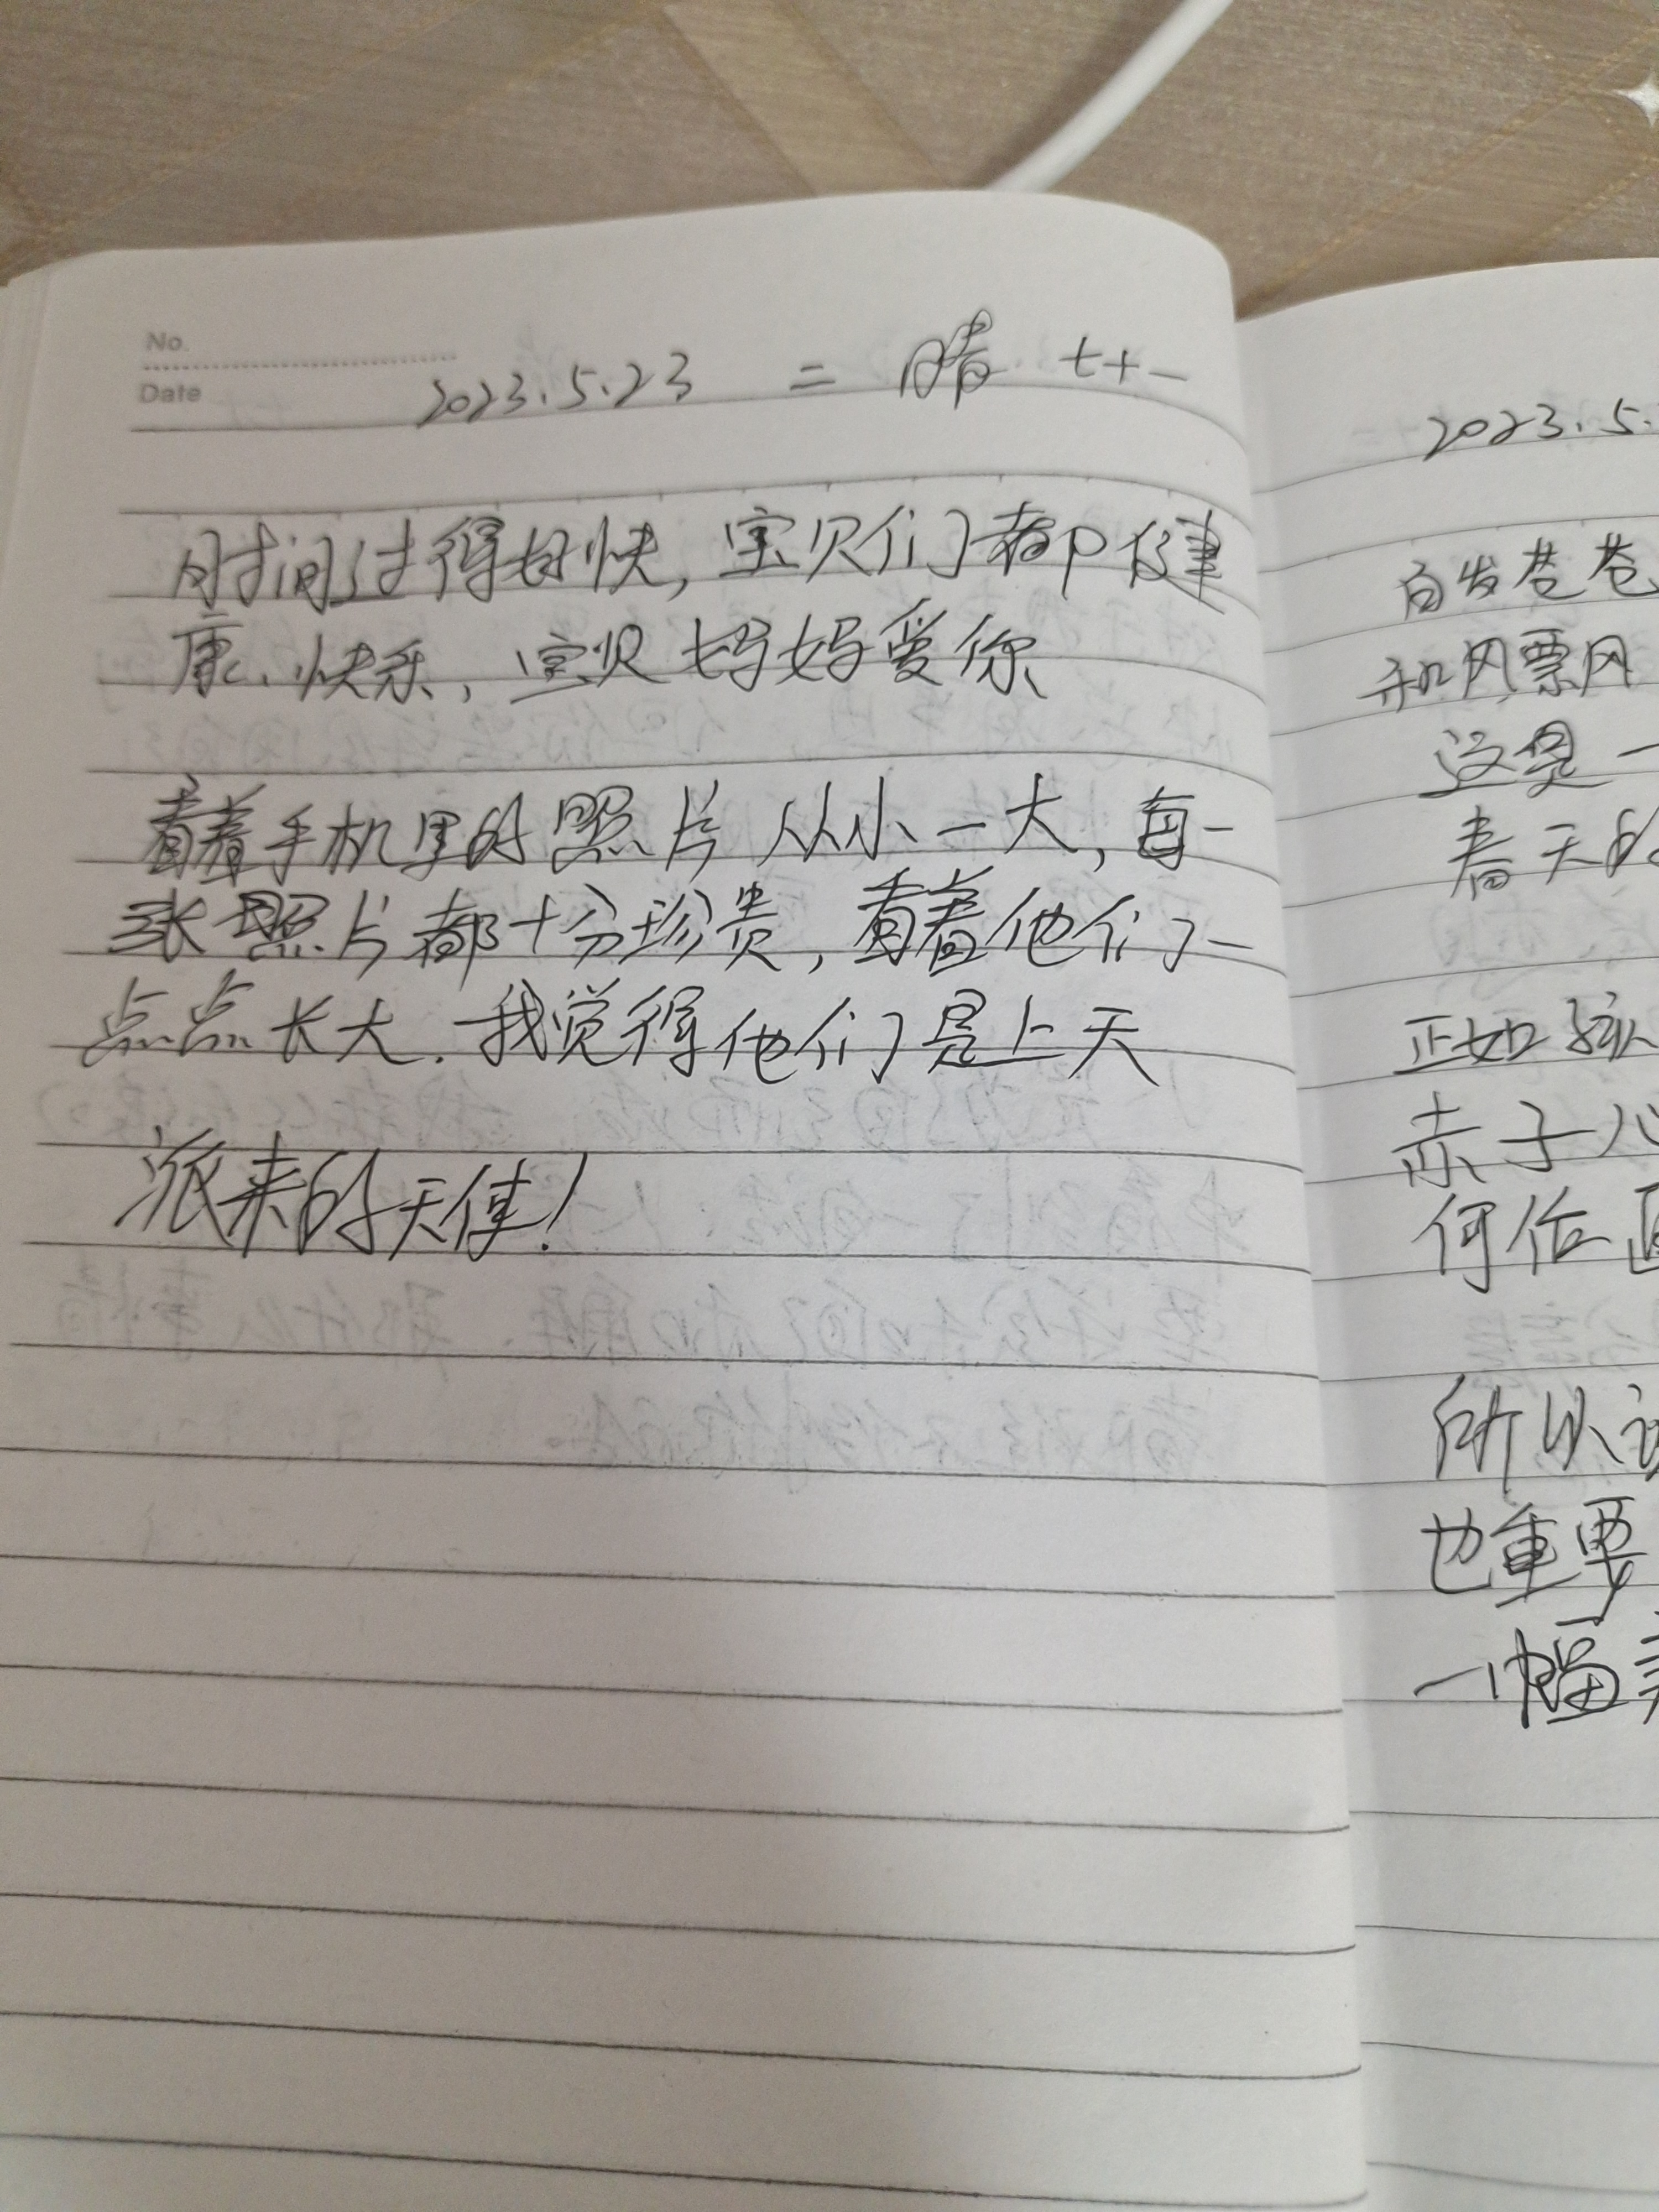 No.
Date
2023.5.23 二 晴 七十一
时间过得好快,宝贝们都健
康、快乐,宝贝妈妈爱你
看着手机里的照片从小一大,每一
张照片都十分珍贵,看着他们一
点点长大.我觉得他们是上天
派来的天使!
2023.5.
白发苍苍
和风飘风
这是一
春天的
正如孩
赤子心
何俗
所以说
也重要
一幅美